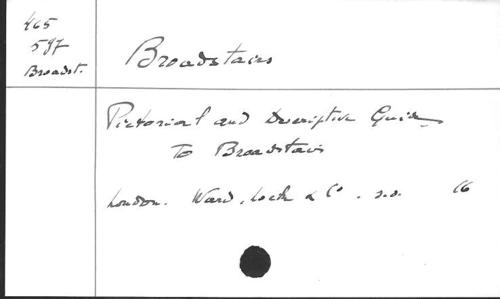 465
597
Broadst.
Broadstairs
Pictorial and Descriptive Guide
To Broadstairs
London. Ward, Lock & Co. s.a. 16